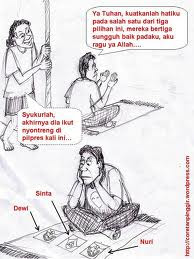 Ya Tuhan, kuatkanlah hatiku
pada salah satu dari tiga
pilihan ini, mereka bertiga
sungguh baik padaku, aku
ragu ya Allah....
Syukurlah,
akhirnya dia ikut
nyontreng di
pilpres kali ini...
Sinta
Dewi
Nuri
http://coretanpinggir.wordpress.com